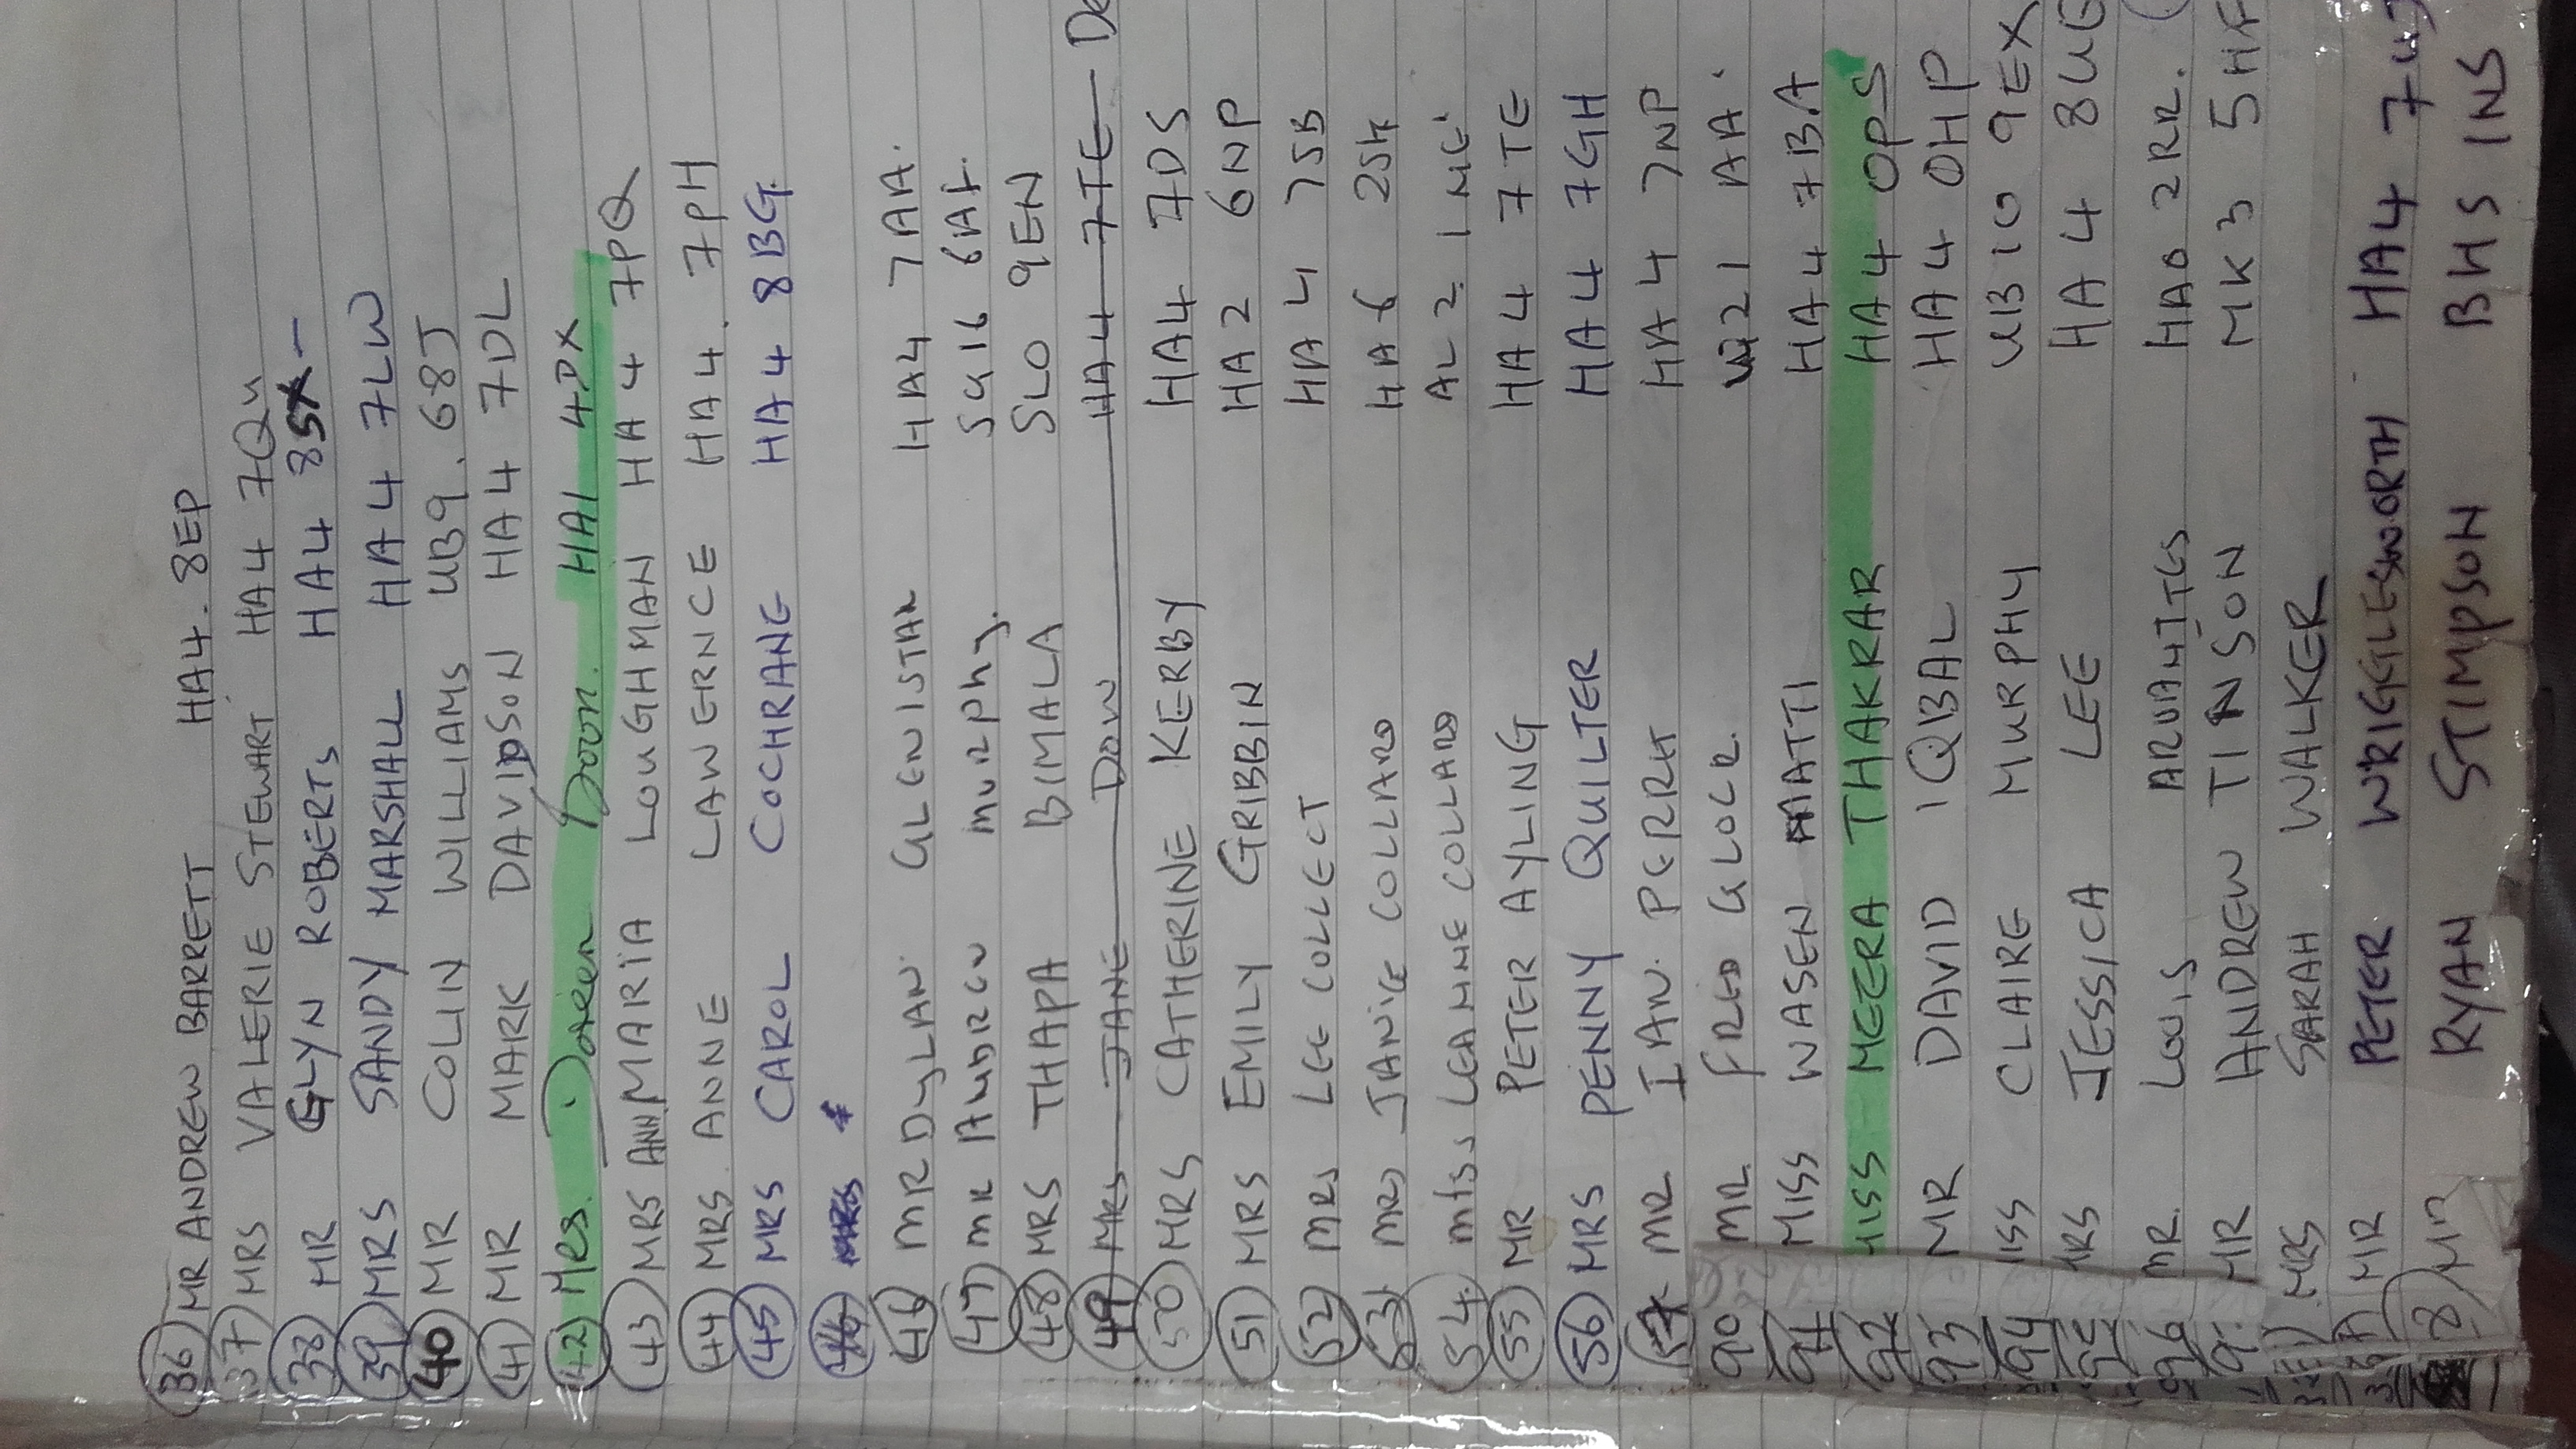 36 MR ANDREW BARRETT HA4. 8EP
37 MRS VALERIE STEWART HA4 7QU
38 MR GLYN ROBERTS HA4 8SX -
39 MRS SANDY MARSHALL HA4 7LW
40 MR COLIN WILLIAMS UB9. 68J
41 MR MARK DAVIDSON HA4 7DL
42 Mrs. Doreen Boon. HA1 4DX
43 MRS ANN MARIA LOUGHMAN HA4 7PQ
44 MRS ANNE LAWERNCE HA4. 7PH
45 MRS CAROL COCHRANE HA4 8BG.
46 MRS
46 MR DYLAN GLENISTAR HA4 7AA.
47 MR ANDREW MURPHY. SG16 6AF.
48 MRS THAPA BIMALA SLO 9EN
49 MRS JANE DOW HA4 7TE De
50 MRS CATHERINE KERBY HA4 7DS
51 MRS EMILY GRIBBIN HA2 6NP
52 MRS LEE COLLECT HA4 7SB
53 MRS JANICE COLLARD HA6
54. MISS LEANNE COLLARD AL2 1NE
55 MR PETER AYLING HA4 7TE
56 MRS PENNY QUILTER HA4 7GH
57 MR IAN. HA4 7NP
90 MR. FRED AA
91 MISS WASEN MATTI HA4 7BA
92 MISS MEERA THAKRAR HA4 OPS
93 MR DAVID IQBAL HA4 OHP
94 ISS CLAIRE MURPHY UB10 9EX
MRS JESSICA LEE HA4 8UE
96 MR. LOUIS ARVANITES HA0 2RR.
9 MR ANDREW TINSON MK3 5HF
MRS SARAH WALKER
MR PETER WRIGGLESWORTH HA4
8 MR RYAN STIMPSON BHS INS